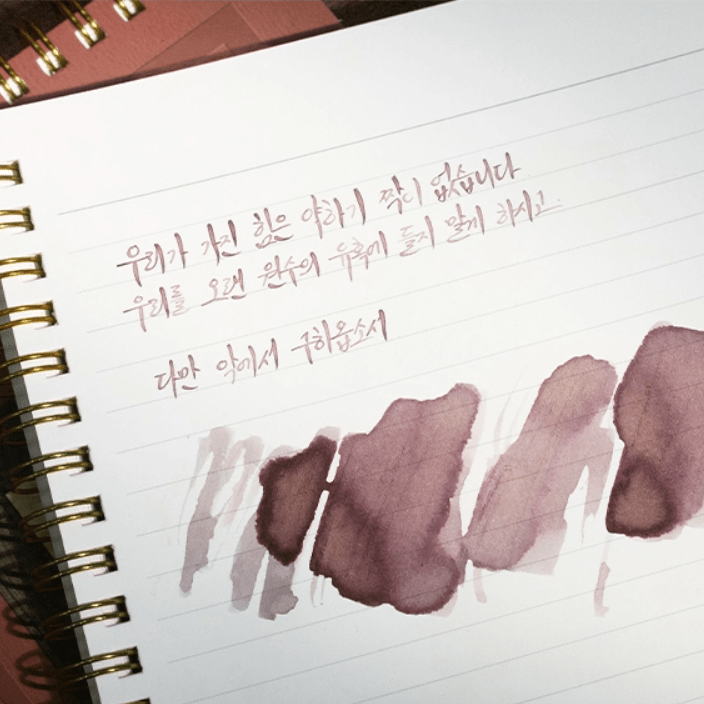 우리가 가진 힘은 약하기 짝이 없습니다
우리를 오랜 원수의 유혹에 들지 말게 하시고
다만 악에서 구하옵소서